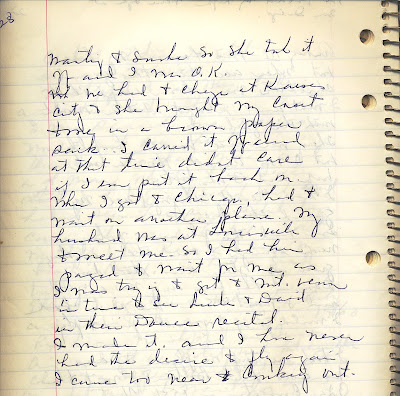 28
wanting to smoke so she took it
off and I was O.K.
but we had to change at Kansas
City & she brought my coat
to me in a brown paper
sack. I carried it off and
at that time didn't care
if I ever put it back on.
When I got to Chicago, had to
wait on another plane. My
husband was at Louisville
to meet me. So I had him
paged to wait for me, as
I was trying to get to Mt. Vernon
in time to see Linda & David
in their Dance recital.
I made it, and I have never
had the desire to fly again
I came too near to conking out.